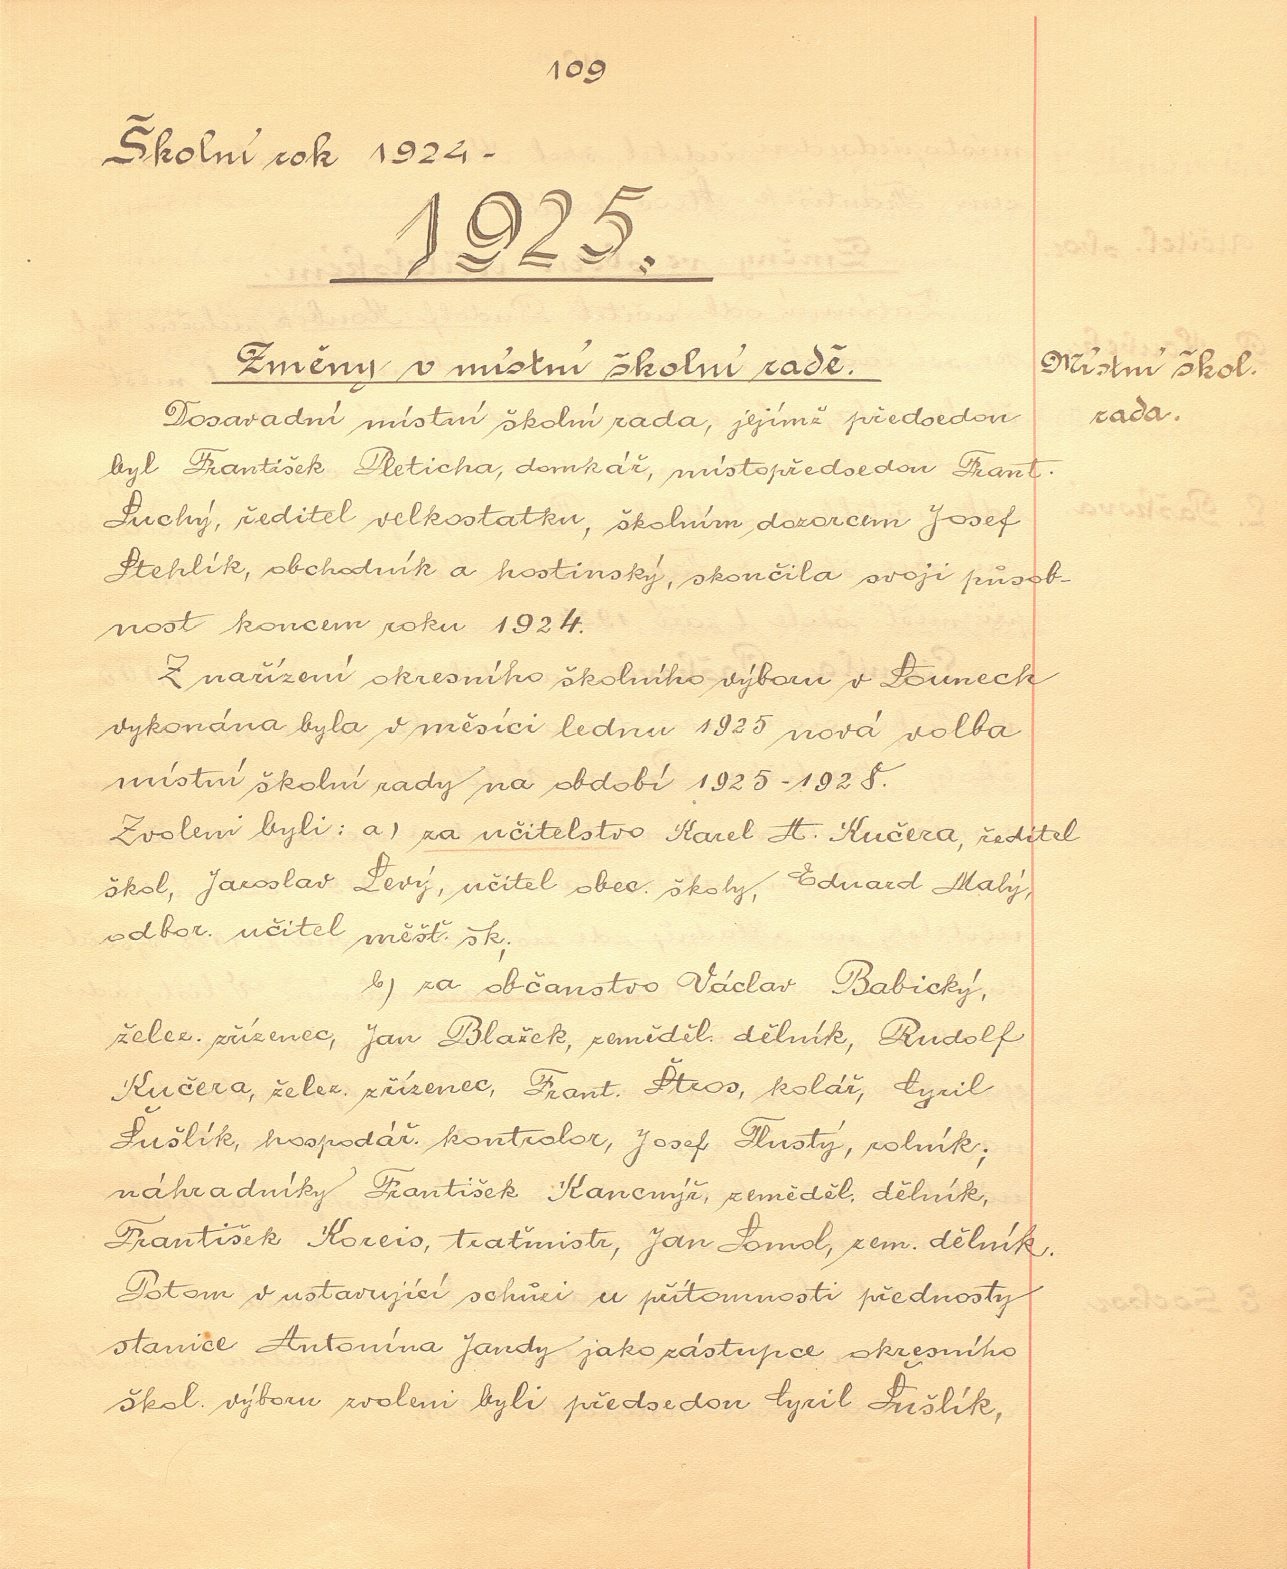 109
Školní rok 1924-
1925.
Změny v místní školní radě.
Místní škol.
rada.
Dosavadní místní školní rada, jejímž předsedou
byl František Pleticha, domkář, místopředsedou Frant.
Suchý, ředitel velkostatku, školním dozorcem Josef
Stehlík, obchodník a hostinský, skončila svoji působ-
nost koncem roku 1924.
Z nařízení okresního školního výboru v Lounech
vykonána byla v měsíci lednu 1925 nová volba
místní školní rady na období 1925-1928.
Zvoleni byli: a) za učitelstvo Karel A. Kučera, ředitel
škol, Jaroslav Levý, učitel obec. školy, Eduard Malý,
odbor. učitel měšť. šk;
b) za občanstvo Václav Babický,
želez. zřízenec, Jan Blažek, zeměděl. dělník, Rudolf
Kučera, želez. zřízenec, Frant. Štros, kolář, Cyril
Šušlík, hospodář. kontrolor, Josef Tlustý, rolník;
náhradníky František Kancnýř, zeměděl. dělník,
František Koreis, traťmistr, Jan Somol, zem. dělník.
Potom v ustavující schůzi u přítomnosti přednosty
stanice Antonína Jandy jako zástupce okresního
škol. výboru zvoleni byli předsedou Cyril Šušlík,